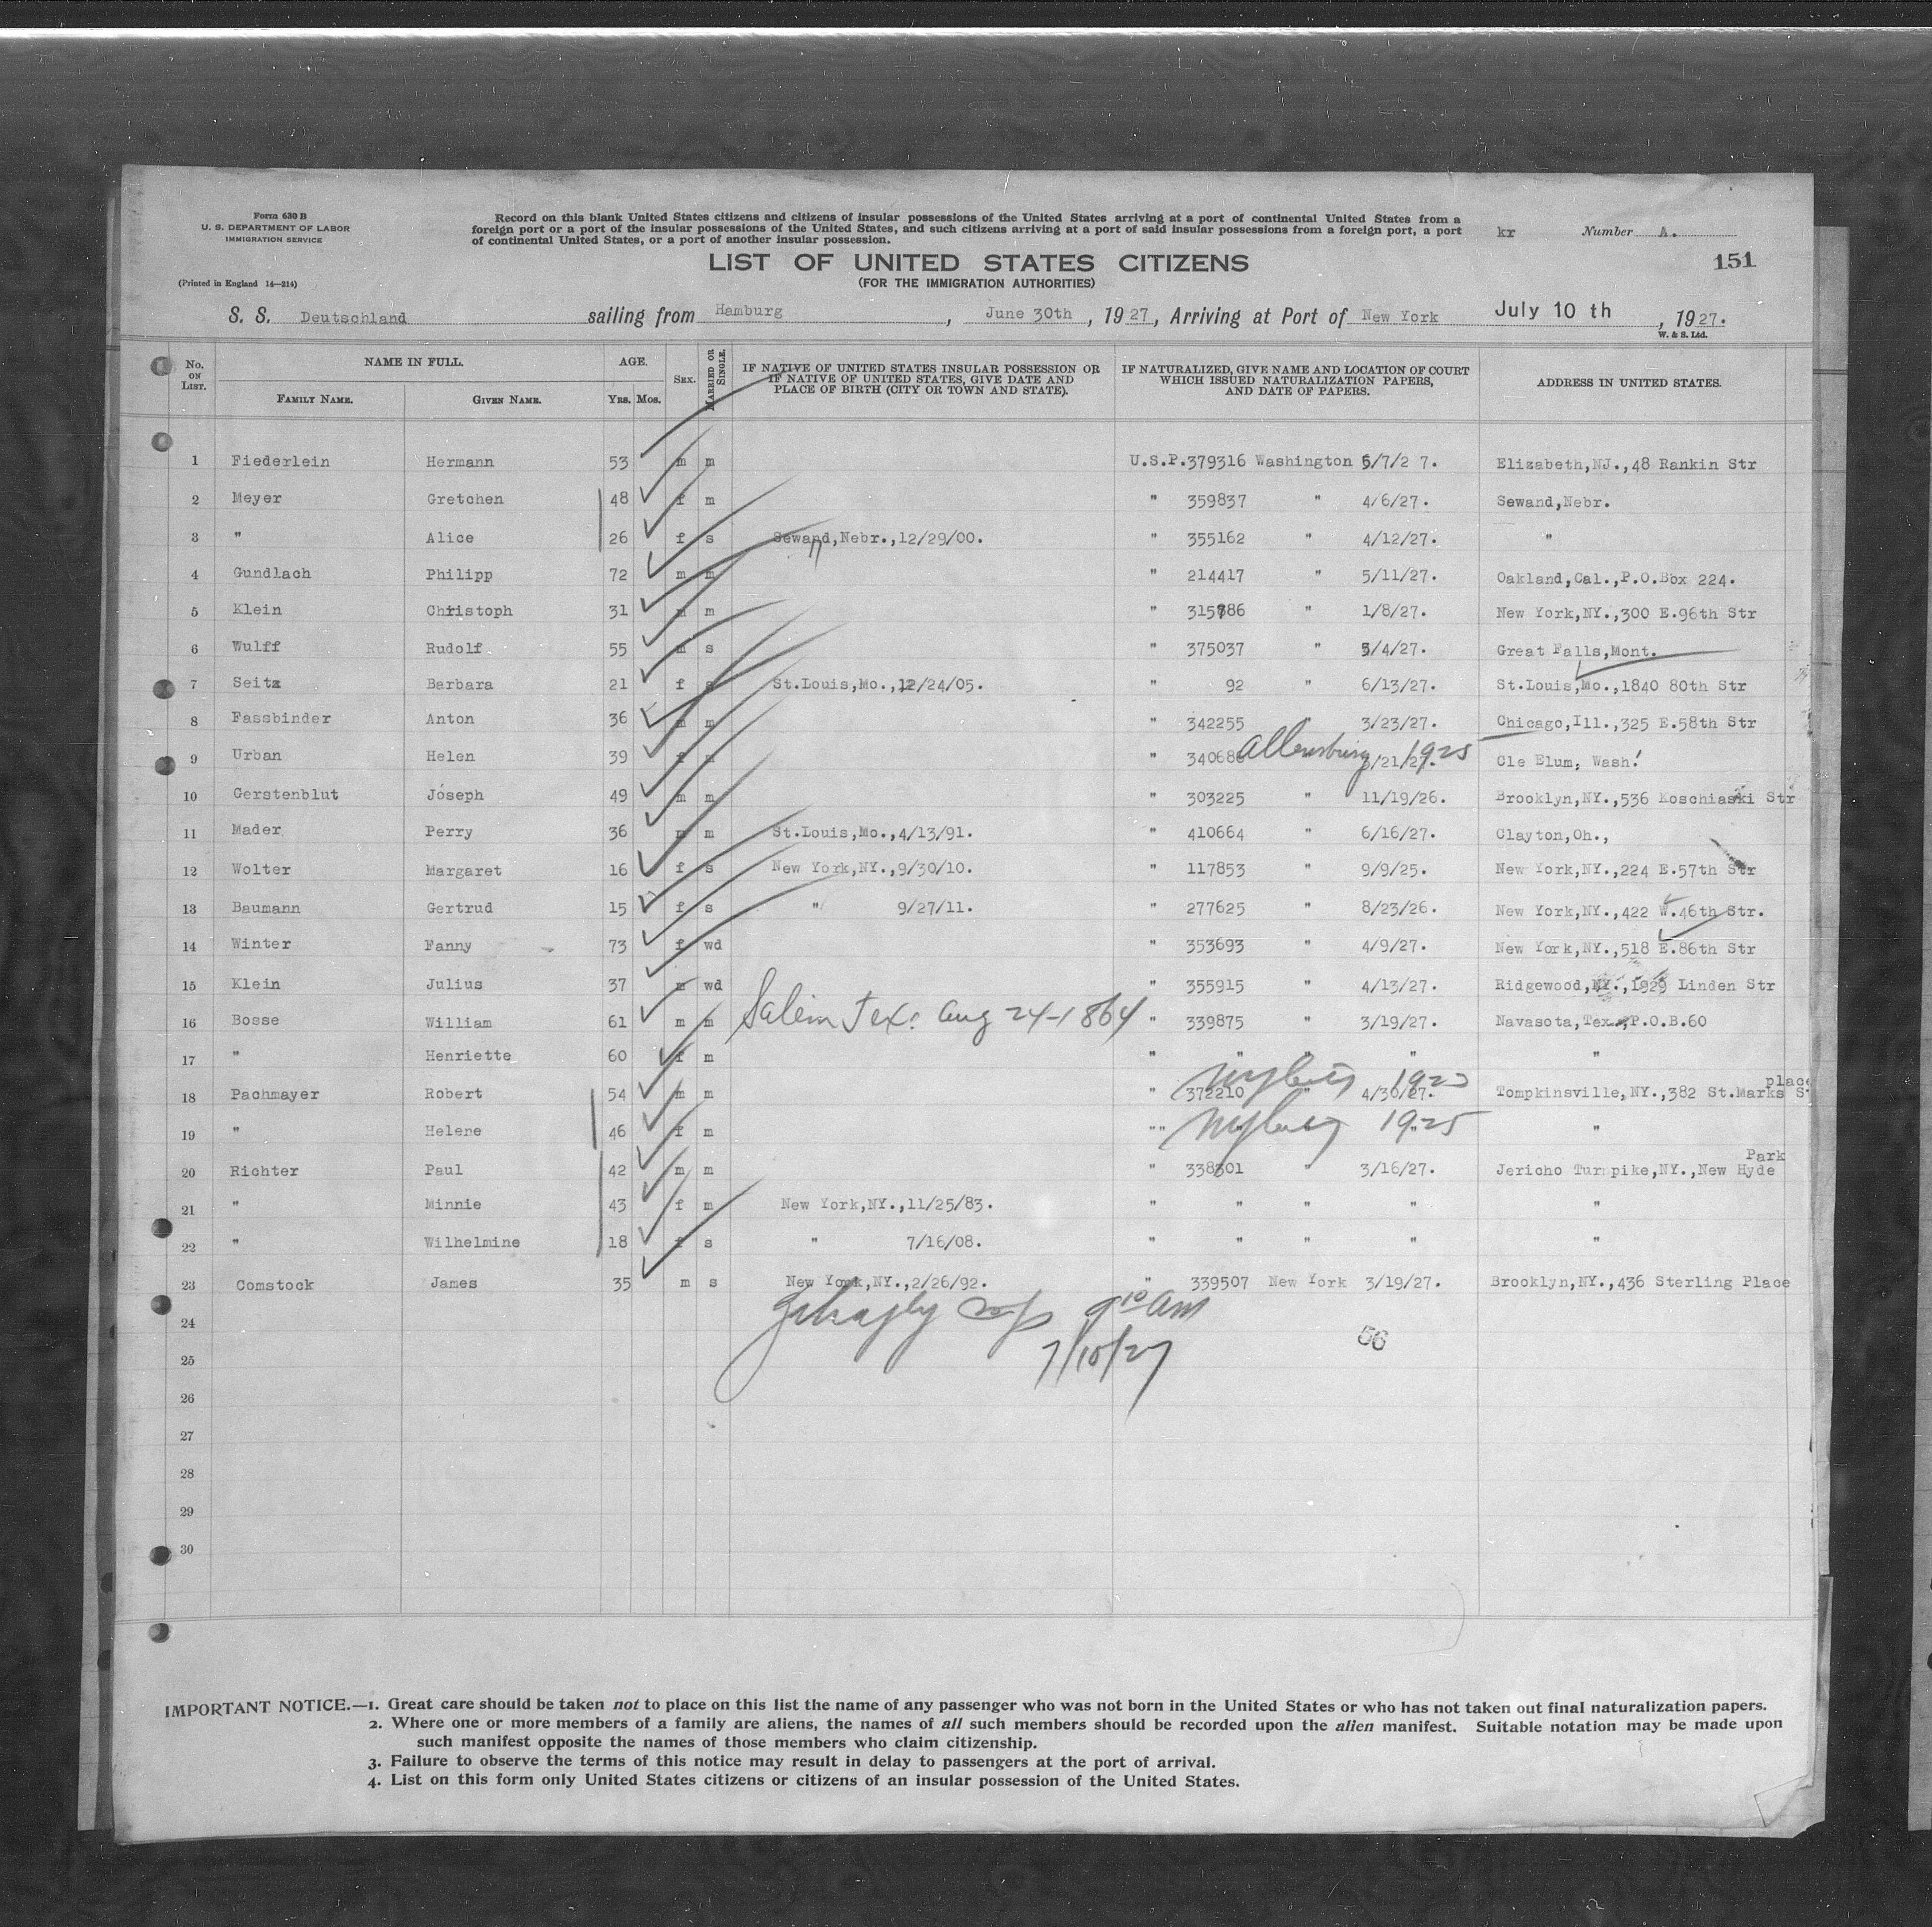 Form 630 B
U. S. DEPARTMENT OF LABOR
IMMIGRATION SERVICE
(Printed in England 14—214)
Record on this blank United States citizens and citizens of insular possessions of the United States arriving at a port of continental United States from a
foreign port or a port of the insular possessions of the United States, and such citizens arriving at a port of said insular possessions from a foreign port, a port
of continental United States, or a port of another insular possession.
kr Number A.
151
LIST OF UNITED STATES CITIZENS
(FOR THE IMMIGRATION AUTHORITIES)
S. S. Deutschland sailing from Hamburg, June 30th, 1927, Arriving at Port of New York July 10 th, 1927.
W. & S. Ltd.
No. ON LIST. NAME IN FULL. AGE. SEX. MARRIED OR SINGLE. IF NATIVE OF UNITED STATES INSULAR POSSESSION OR IF NATIVE OF UNITED STATES, GIVE DATE AND PLACE OF BIRTH (CITY OR TOWN AND STATE). IF NATURALIZED, GIVE NAME AND LOCATION OF COURT WHICH ISSUED NATURALIZATION PAPERS, AND DATE OF PAPERS. ADDRESS IN UNITED STATES.
FAMILY NAME. GIVEN NAME. YRS. MOS.
1 Fiederlein Hermann 53 m m U.S.P.379316 Washington 5/7/2 7. Elizabeth,NJ.,48 Rankin Str
2 Meyer Gretchen 48 f m " 359837 " 4/6/27. Sewand,Nebr.
3 " Alice 26 f s Sewand,Nebr.,12/29/00. " 355162 " 4/12/27. "
4 Gundlach Philipp 72 m m " 214417 " 5/11/27. Oakland,Cal.,P.O.Bbx 224.
5 Klein Christoph 31 m m " 315786 " 1/8/27. New York,NY.,300 E.96th Str
6 Wulff Rudolf 55 m s " 375037 " 5/4/27. Great Falls,Mont.
7 Seitz Barbara 21 f s St.Louis,Mo.,12/24/05. " 92 " 6/13/27. St.Louis,Mo.,1840 80th Str
8 Fassbinder Anton 36 m m " 342255 " 3/23/27. Chicago,Ill.,325 E.58th Str
9 Urban Helen 39 f m " 340686 3/21/27. 1925 Cle Elum, Wash!
10 Gerstenblut Joseph 49 m m " 303225 " 11/19/26. Brooklyn,NY.,536 Koschiaski Str
11 Mader Perry 36 m m St.Louis,Mo.,4/13/91. " 410664 " 6/16/27. Clayton,Oh.,
12 Wolter Margaret 16 f s New York,NY.,9/30/10. " 117853 " 9/9/25. New York,NY.,224 E.57th Str
13 Baumann Gertrud 15 f s " 9/27/11. " 277625 " 8/23/26. New York,NY.,422 W.46th Str.
14 Winter Fanny 73 f wd " 353693 " 4/9/27. New York,NY.,518 E.86th Str
15 Klein Julius 37 m wd " 355915 " 4/13/27. Ridgewood,NY.,1929 Linden Str
16 Bosse William 61 m m Salem Tex: Aug 24-1864 " 339875 " 3/19/27. Navasota,Tex.,P.O.B.60
17 " Henriette 60 f m " " " " "
18 Pachmayer Robert 54 m m " 372210 " 4/30/27. Tompkinsville,NY.,382 St.Marks place
19 " Helene 46 f m "" 1925 "
20 Richter Paul 42 m m " 338301 " 3/16/27. Jericho Turnpike,NY.,New Hyde Park
21 " Minnie 43 f m New York,NY.,11/25/83. " " " " "
22 " Wilhelmine 18 f s " 7/16/08. " " " " "
23 Comstock James 35 m s New York,NY.,2/26/92. " 339507 New York 3/19/27. Brooklyn,NY.,436 Sterling Place
24 9 10 am
56
25 7/10/27
26
27
28
29
30
IMPORTANT NOTICE.—1. Great care should be taken not to place on this list the name of any passenger who was not born in the United States or who has not taken out final naturalization papers.
2. Where one or more members of a family are aliens, the names of all such members should be recorded upon the alien manifest. Suitable notation may be made upon
such manifest opposite the names of those members who claim citizenship.
3. Failure to observe the terms of this notice may result in delay to passengers at the port of arrival.
4. List on this form only United States citizens or citizens of an insular possession of the United States.